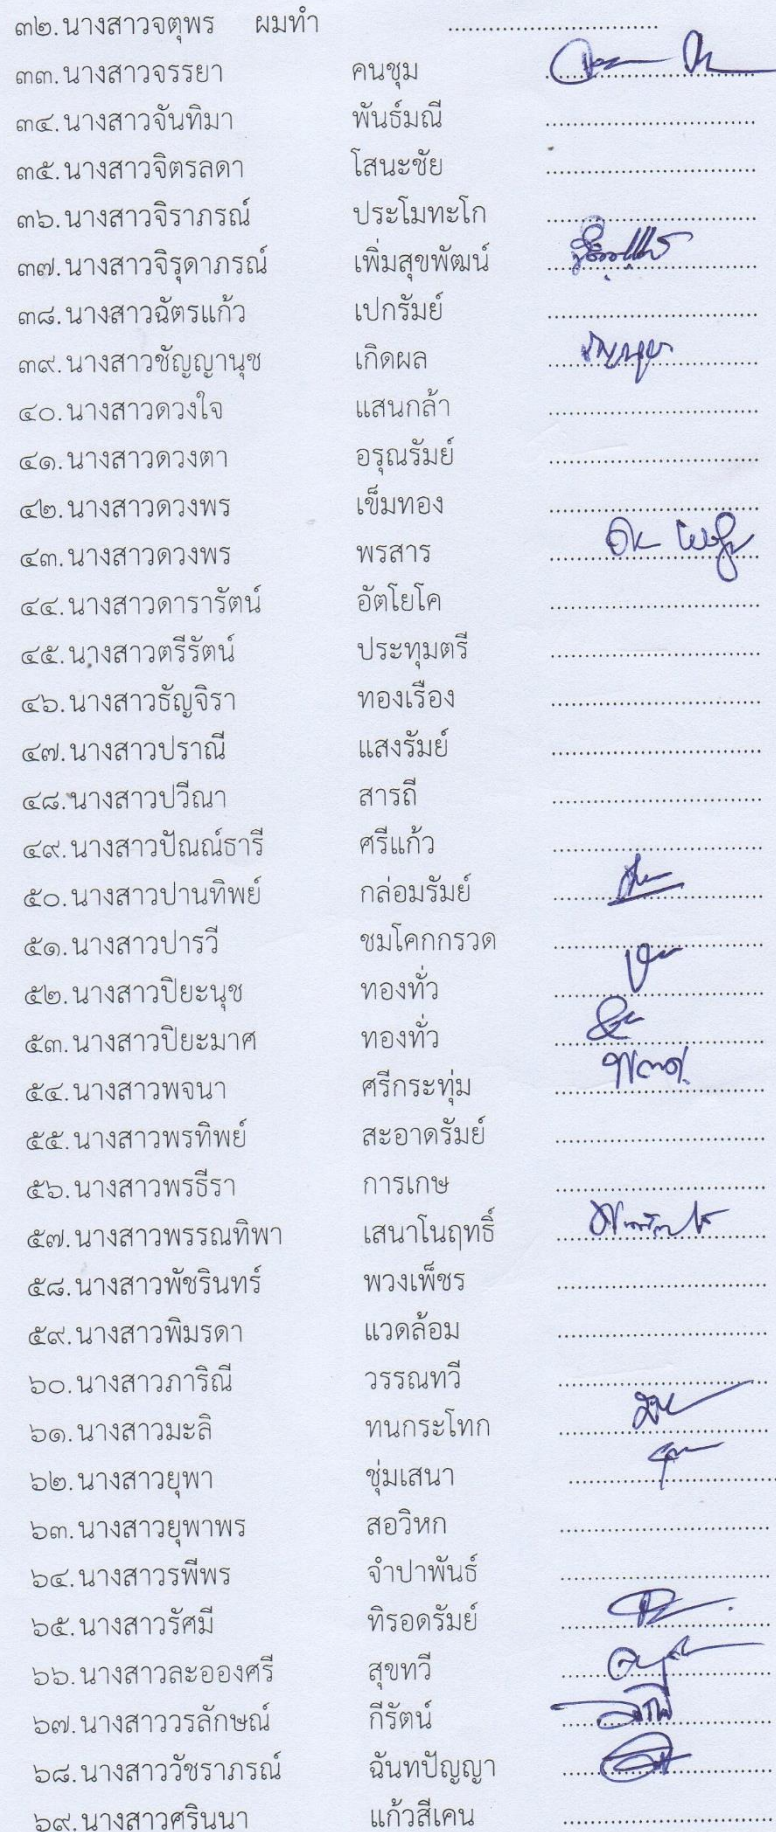 ๓๒.นางสาวจตุพร ผมทำ ........................................
๓๓.นางสาวจรรยา คนชุม ........................................
๓๔.นางสาวจันทิมา พันธ์มณี ........................................
๓๕.นางสาวจิตรลดา โสนะชัย ........................................
๓๖.นางสาวจิราภรณ์ ประโมทะโก ........................................
๓๗.นางสาวจิรุดาภรณ์ เพิ่มสุขพัฒน์ ........................................
๓๘.นางสาวฉัตรแก้ว เปกรัมย์ ........................................
๓๙.นางสาวชัญญานุช เกิดผล ........................................
๔๐.นางสาวดวงใจ แสนกล้า ........................................
๔๑.นางสาวดวงตา อรุณรัมย์ ........................................
๔๒.นางสาวดวงพร เข็มทอง ........................................
๔๓.นางสาวดวงพร พรสาร ........................................
๔๔.นางสาวดารารัตน์ อัตโยโค ........................................
๔๕.นางสาวตรีรัตน์ ประทุมตรี ........................................
๔๖.นางสาวธัญจิรา ทองเรือง ........................................
๔๗.นางสาวปราณี แสงรัมย์ ........................................
๔๘.นางสาวปวีณา สารถี ........................................
๔๙.นางสาวปัณณ์ธารี ศรีแก้ว ........................................
๕๐.นางสาวปานทิพย์ กล่อมรัมย์ ........................................
๕๑.นางสาวปารวี ชมโคกกรวด ........................................
๕๒.นางสาวปิยะนุช ทองทั่ว ........................................
๕๓.นางสาวปิยะมาศ ทองทั่ว ........................................
๕๔.นางสาวพจนา ศรีกระทุ่ม ........................................
๕๕.นางสาวพรทิพย์ สะอาดรัมย์ ........................................
๕๖.นางสาวพรธีรา การเกษ ........................................
๕๗.นางสาวพรรณทิพา เสนาโนฤทธิ์ ........................................
๕๘.นางสาวพัชรินทร์ พวงเพ็ชร ........................................
๕๙.นางสาวพิมรดา แวดล้อม ........................................
๖๐.นางสาวภาริณี วรรณทวี ........................................
๖๑.นางสาวมะลิ ทนกระโทก ........................................
๖๒.นางสาวยุพา ชุ่มเสนา ........................................
๖๓.นางสาวยุพาพร สอวิหก ........................................
๖๔.นางสาวรพีพร จำปาพันธ์ ........................................
๖๕.นางสาวรัศมี ทิรอดรัมย์ ........................................
๖๖.นางสาวละอองศรี สุขทวี ........................................
๖๗.นางสาววรลักษณ์ กีรัตน์ ........................................
๖๘.นางสาววัชราภรณ์ ฉันทปัญญา ........................................
๖๙.นางสาวศรินนา แก้วสีเคน ........................................